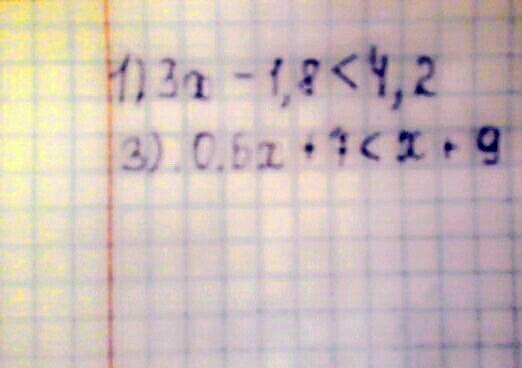 1) 3x - 1,8 < 4,2
3). 0.6x + 7 < x + 9